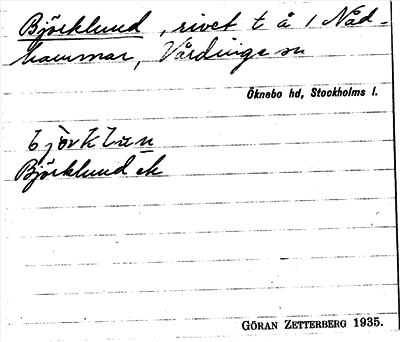 Björklund, rivet t å 1 Nåd-
hammar, Vårdinge sn
Öknebo hd, Stockholms l.
björklun
Björklund ek
GÖRAN ZETTERBERG 1935.